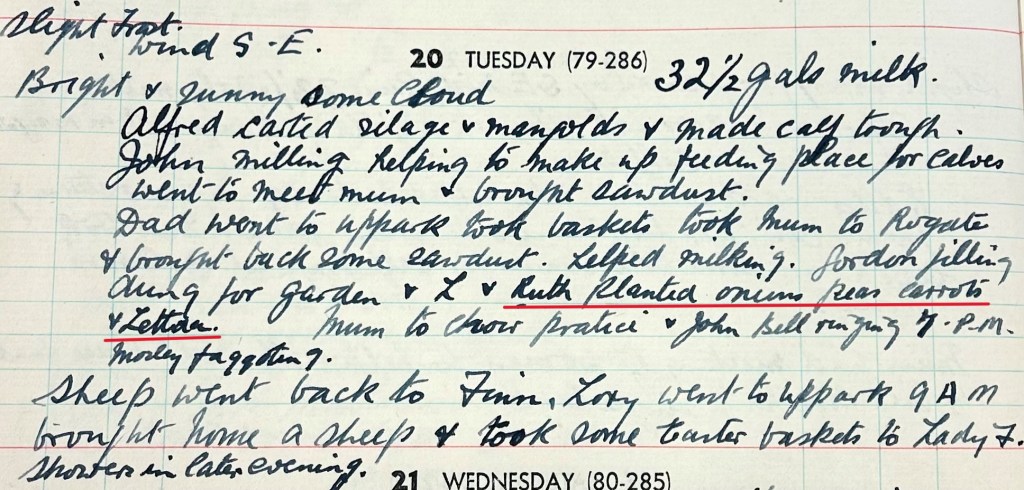 Slight Frost.
Wind S-E.
20 TUESDAY (79-286)
32 1/2 gals milk.
Bright & sunny some Cloud
Alfred carted silage & mangolds & made calf trough.
John milling helping to make up feeding place for calves
went to meet mum & brought sawdust.
Dad went to uppark took baskets took Mum to Rogate
& brought back some sawdust. helped milking. Gordon filling
dung for garden & L & Ruth planted onions peas carrots
& Lettuce. Mum to choir pratice & John Bell ringing 7.P.M.
Morley faggoting.
Sheep went back to Finn, Lory went to uppark 9 A M
brought home a sheep & took some Easter baskets to Lady F.
showers in later evening.
21 WEDNESDAY (80-285)